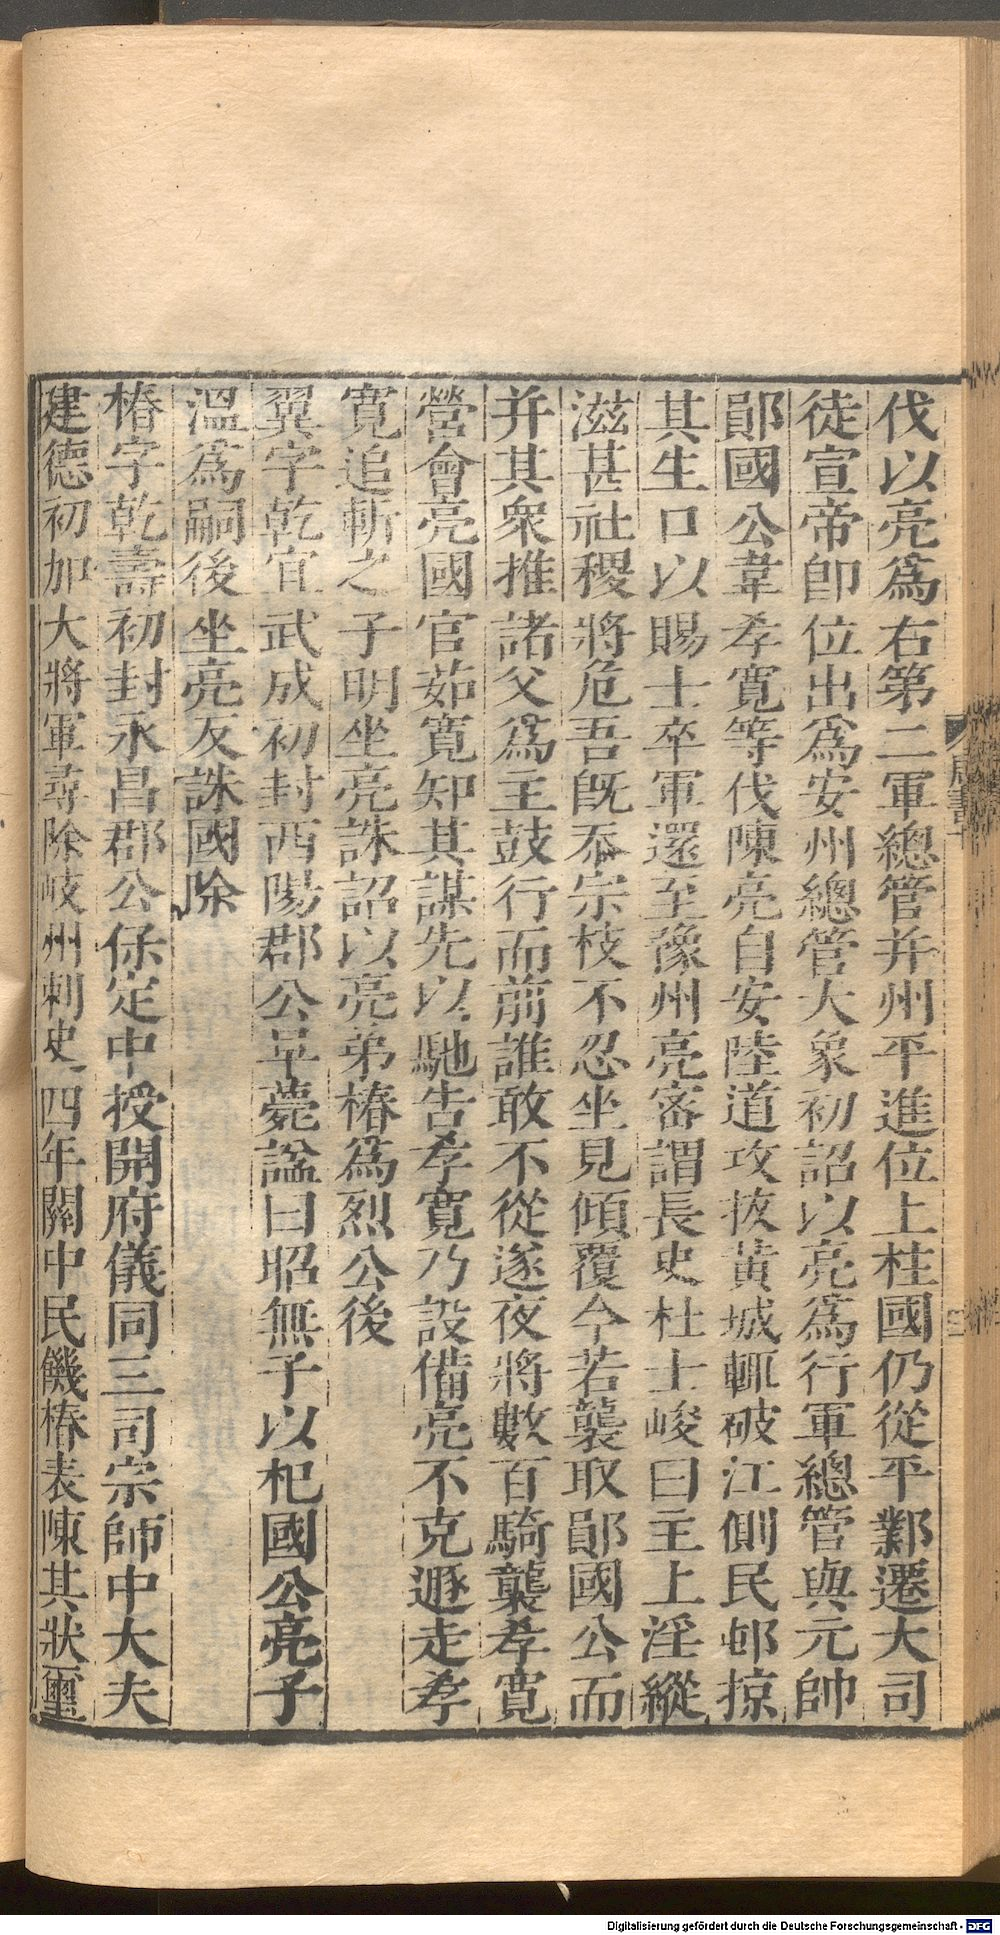 伐以亮爲右第二軍總管并州平進位上柱國仍從平鄴遷大司
徒宣帝卽位出爲安州總管大象初詔以亮爲行軍總管與元帥
鄖國公韋孝寬等伐陳亮自安陸道攻拔黃城輒破江側民邨掠
其生口以賜士卒軍還至豫州亮密謂長史杜士峻曰主上淫縱
滋甚社稷將危吾旣忝宗枝不忍坐見傾覆今若襲取鄖國公而
并其衆推諸父爲主鼓行而前誰敢不從遂夜將數百騎襲孝寬
營會亮國官茹寬知其謀先以馳告孝寬乃設備亮不克遯走孝
寬追斬之子明坐亮誅詔以亮弟椿爲烈公後
翼字乾宜武成初封西陽郡公早薨諡曰昭無子以杞國公亮子
溫爲嗣後坐亮反誅國除
椿字乾壽初封永昌郡公保定中授開府儀同三司宗師中大夫
建德初加大將軍尋除岐州刺史四年關中民饑椿表陳其狀璽
周書十
Digitalisierung gefördert durch die Deutsche Forschungsgemeinschaft - DFG